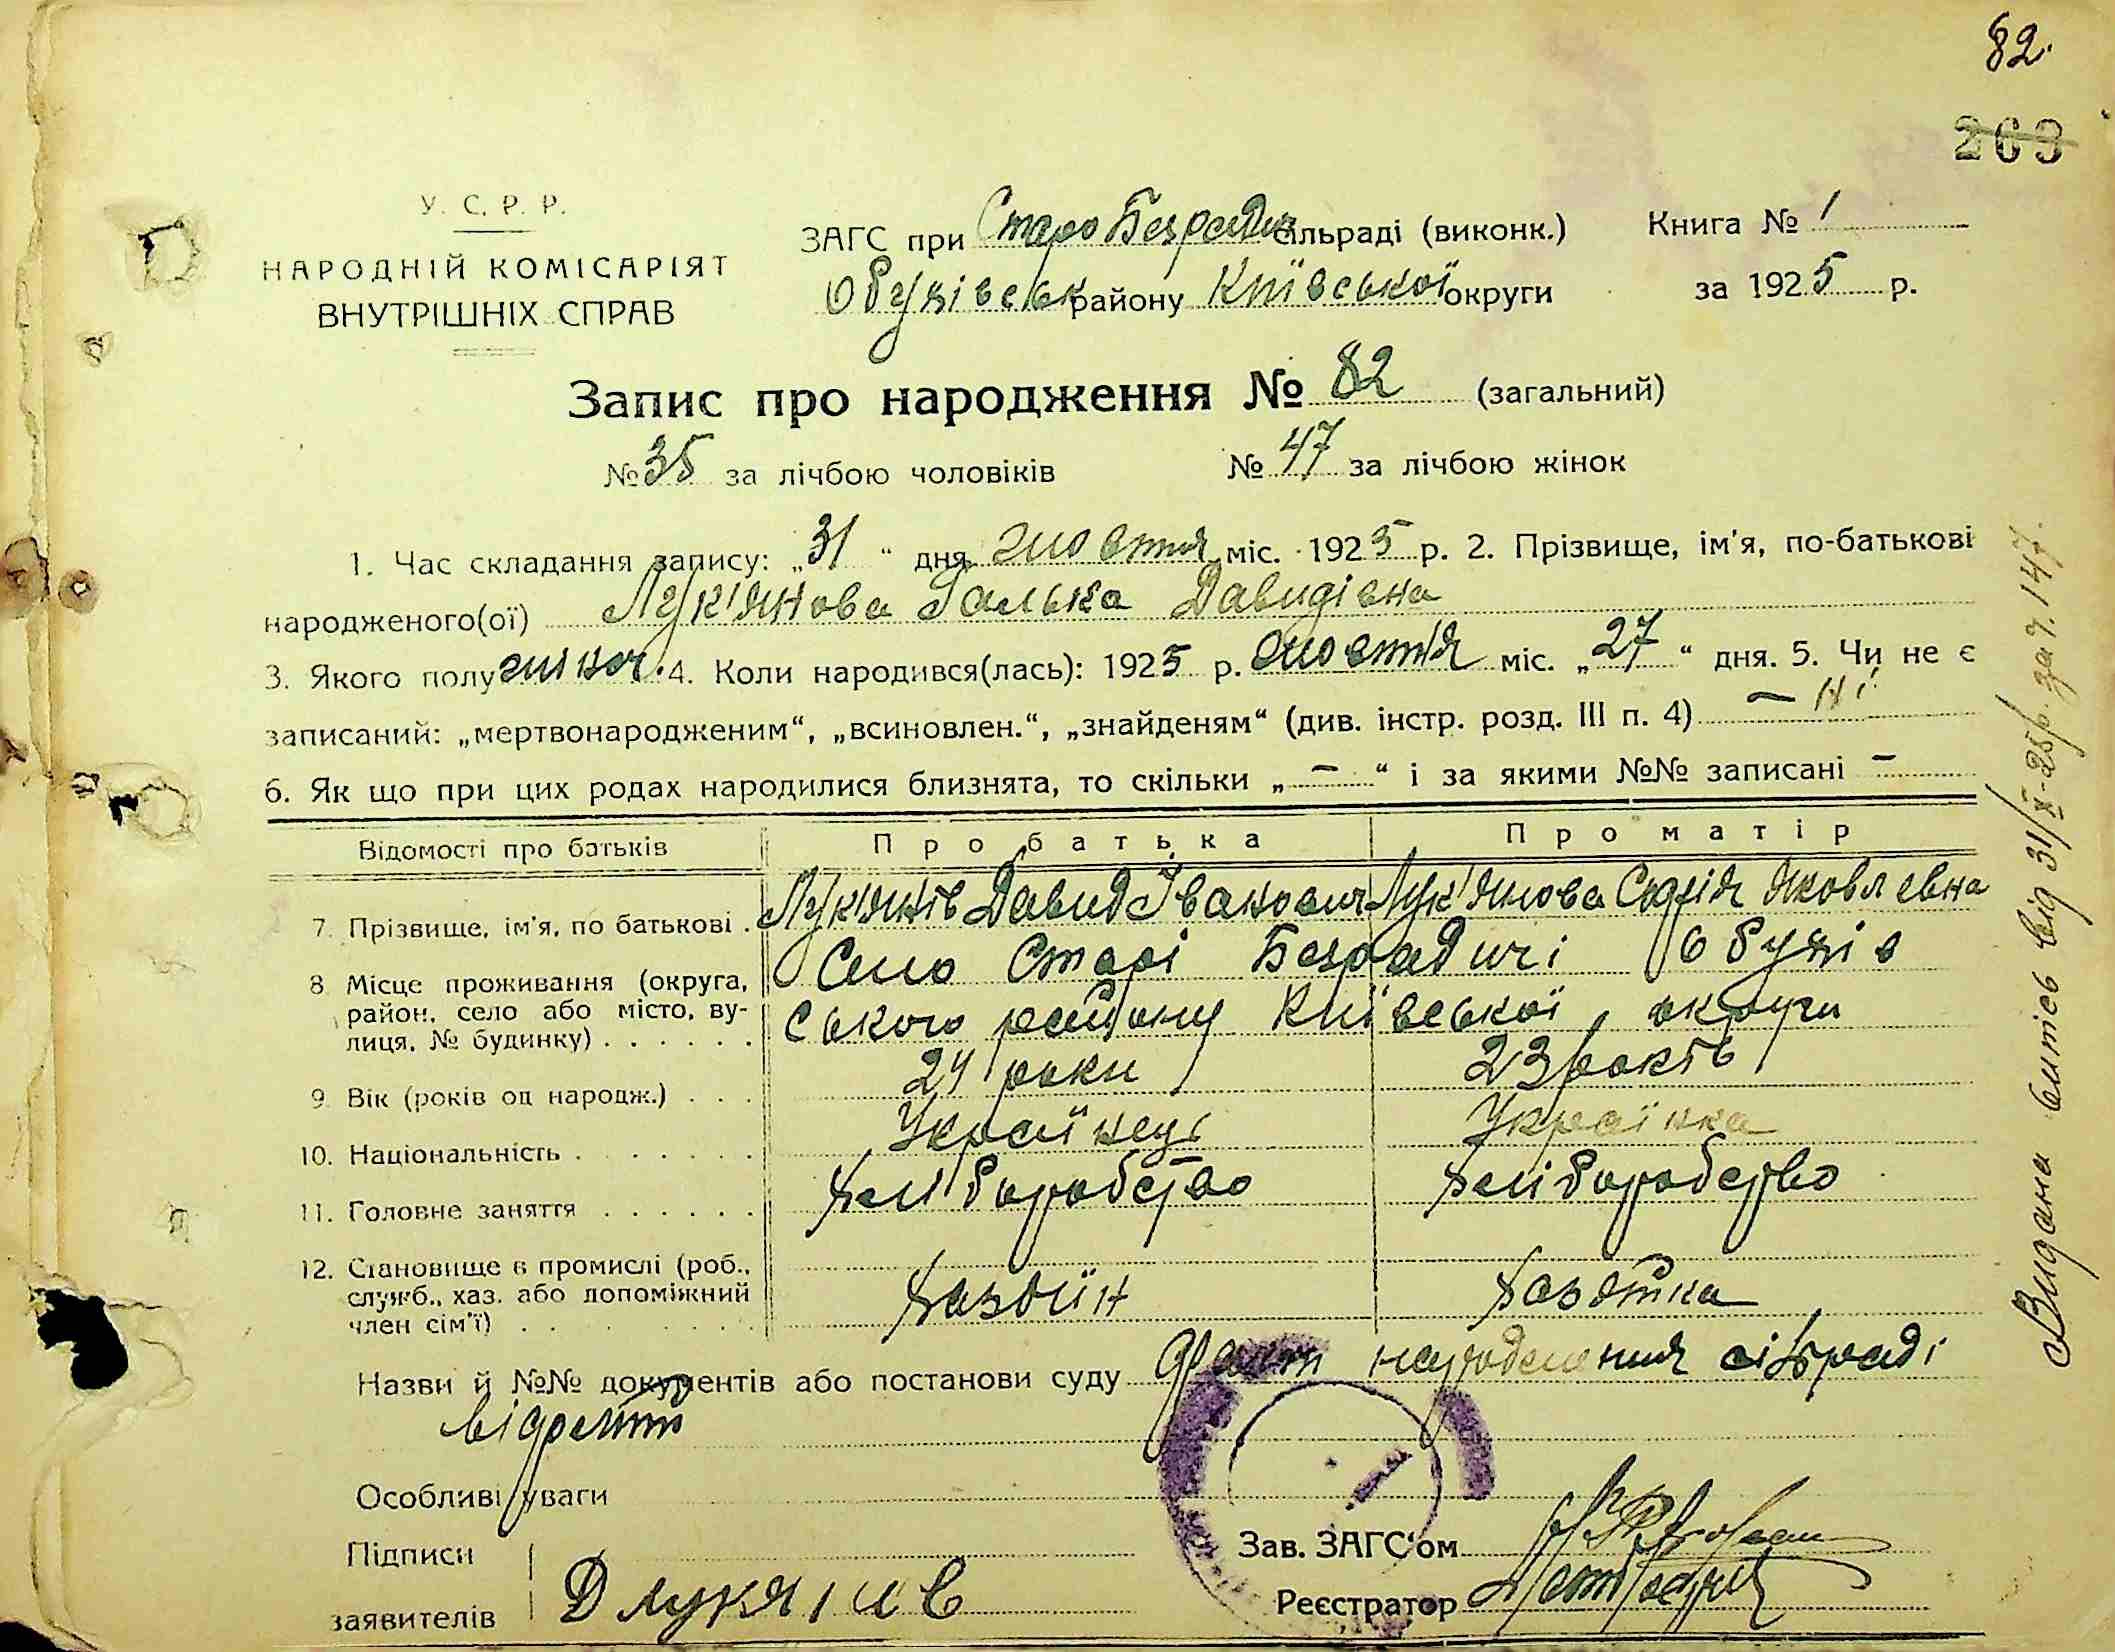 82.
263
У. С. Р. Р.
НАРОДНІЙ КОМІСАРІЯТ
ВНУТРІШНІХ СПРАВ
ЗАГС при Старо Безрадич сільраді (виконк.)
Обухівськ району Київської округи
Книга № 1
за 1925 р.
Запис про народження № 82 (загальний)
№ 35 за лічбою чоловіків № 47 за лічбою жінок
1. Час складання запису: „31“ дня жовтня міс. 1925 р. 2. Прізвище, ім'я, по-батькові
народженого(ої) Лук'янова Галька Давидівна
3. Якого полу жіноч. 4. Коли народився(лась): 1925 р. жовтня міс. „27“ дня. 5. Чи не є
записаний: „мертвонародженим“, „всиновлен.“, „знайденям“ (див. інстр. розд. III п. 4) — ні
6. Як що при цих родах народилися близнята, то скільки „—“ і за якими №№ записані —
Відомості про батьків Про батька Про матір
7. Прізвище, ім'я, по батькові . Лук'янів Давид Іванович Лук'янова Софія Яковлевна
8. Місце проживання (округа, район, село або місто, вулиця, № будинку) . . . . . . Село Старі Безрадичі Обухів
ського району Київської округи
9. Вік (років од народж.) . . . 24 роки 23 років
10. Національність . . . . . . . Українець Українка
11. Головне заняття . . . . . . хліборобство хліборобство
12. Становище в промислі (роб.,
служб., хаз. або допоміжний
член сім'ї) . . . . . . . хазяїн хазяйка
Назви й №№ документів або постанови суду факт народження сільраді
відом
Особливі уваги
Підписи
заявителів Д Лукянів
Зав. ЗАГС'ом
Реєстратор
Видана витісь від 31/X-25р. за ч. 147.